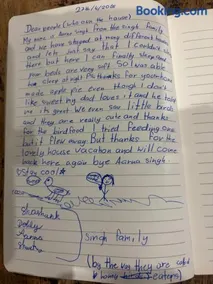 Booking.com
27/6/2021
Dear people (who own the house)
My name is Aarna Singh from the singh family
and we have stayed at many different houses
and lets just say that I couldn't
there but here I can finally sleep
your beds are very soft SO I was able
to sleep alright Ps thanks for your
made apple pie even though I don't
like sweet my dad loves it and he told
me its great. We even saw little birds
and they are really cute and thanks
for the bird food I tried feeding one
but it flew away But thanks for the
lovely house vacation and will come
back here again bye Aarna singh.
Stay cool
Shashank
Singh family
(by the way they are called